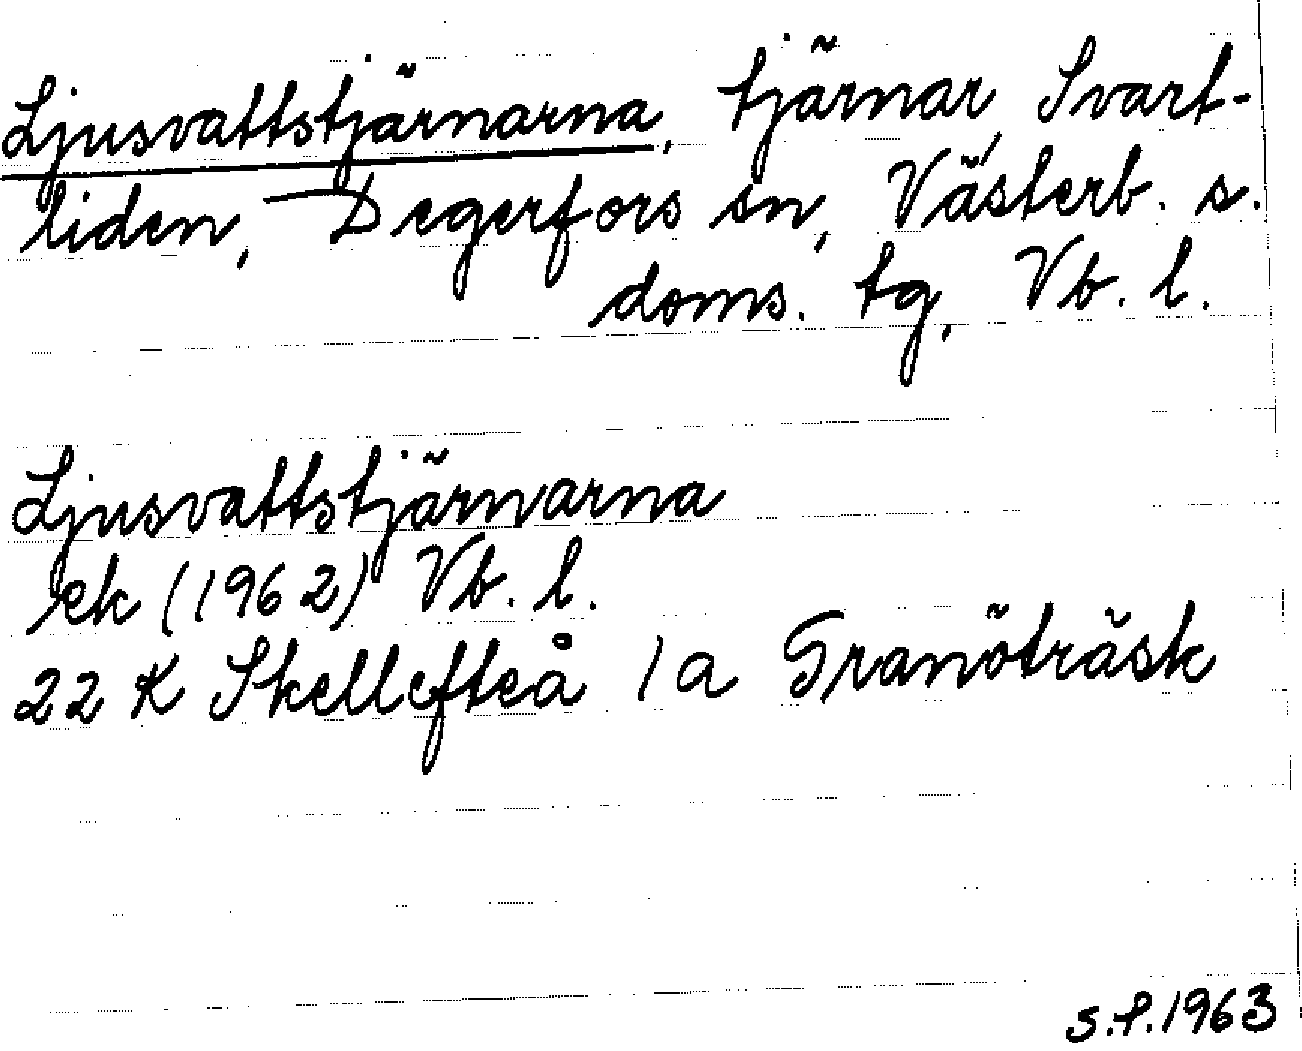 Ljusvattstjärnarna, tjärnar, Svart-
liden, Degerfors sn, Västerb. s.
doms. tg, Vb. l.
Ljusvattstjärnarna
ek (1962) Vb. l.
22 K Skellefteå 1a Granöträsk
S.f.1963